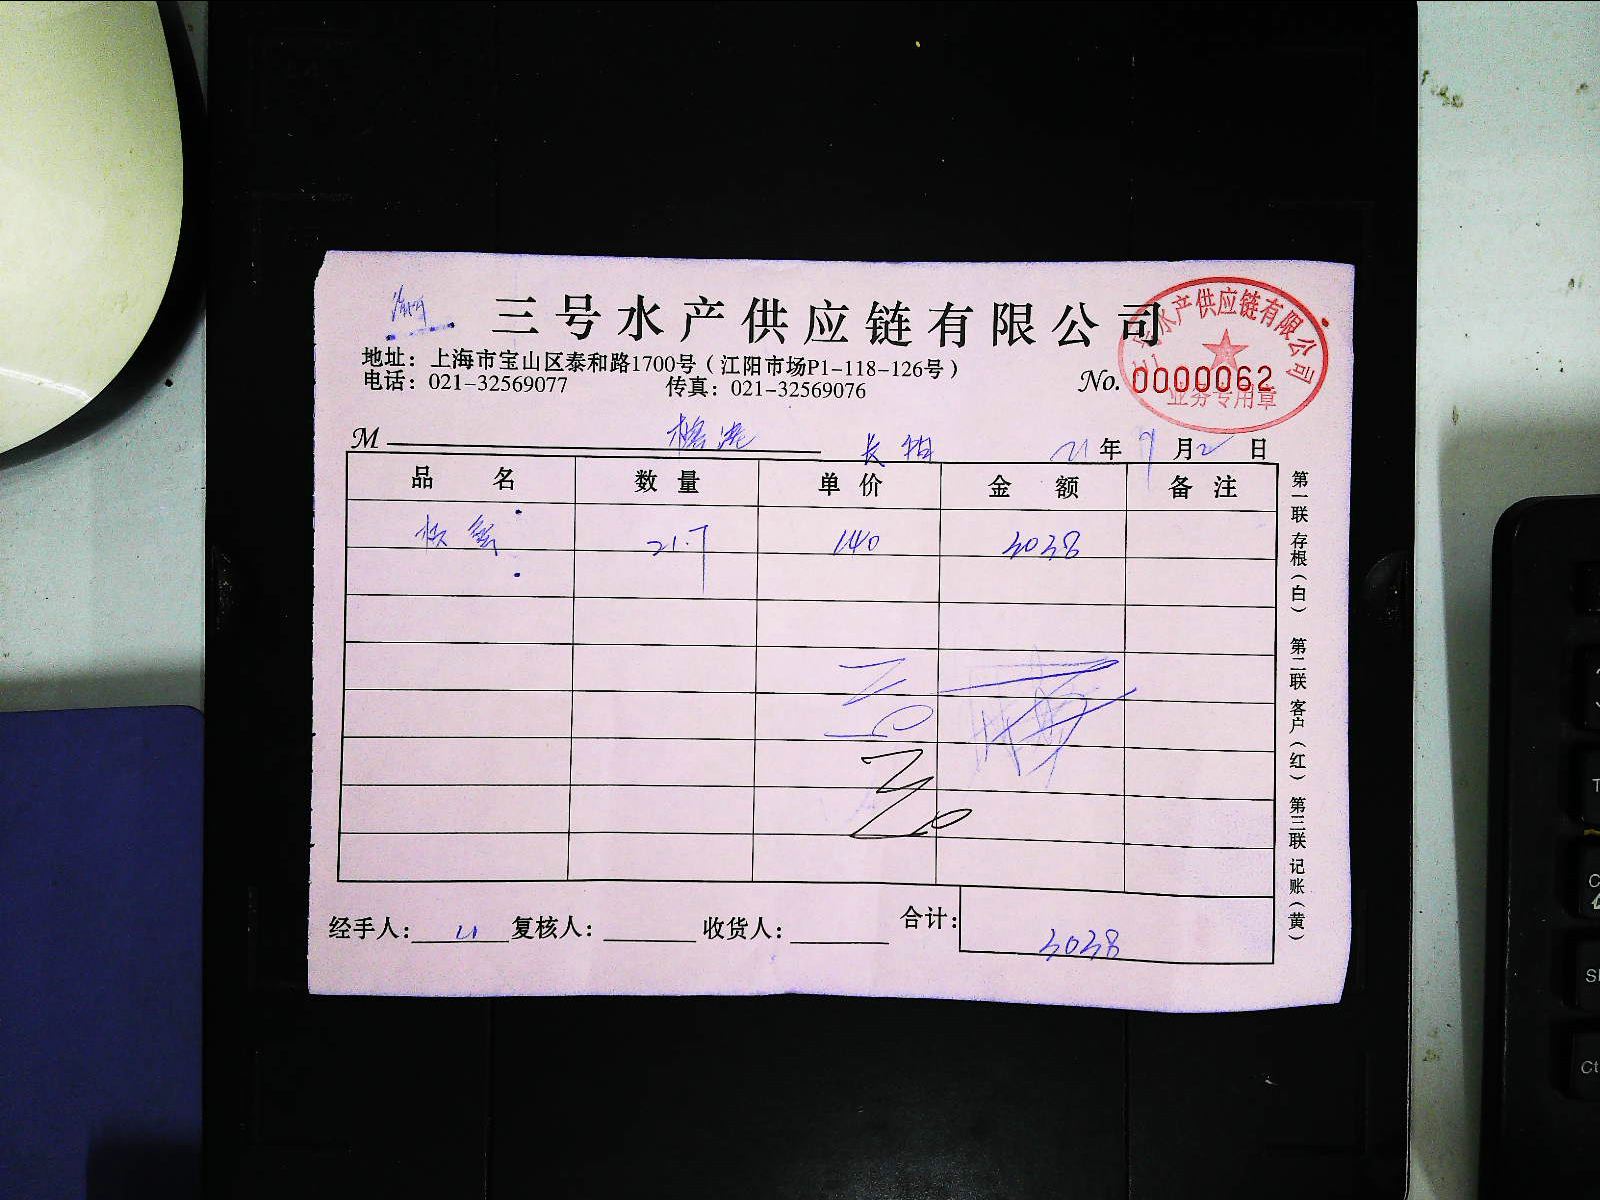 三号水产供应链有限公司
地址：上海市宝山区泰和路1700号（江阳市场P1-118-126号）
电话：021-32569077 传真：021-32569076
No. 0000062
水产供应链有限公司
业务专用章
M 21年9月2日
品名 数量 单价 金额 备注
21.7 140 3038
经手人： 复核人： 收货人： 合计：3038
第一联 存根（白） 第二联 客户（红） 第三联 记账（黄）